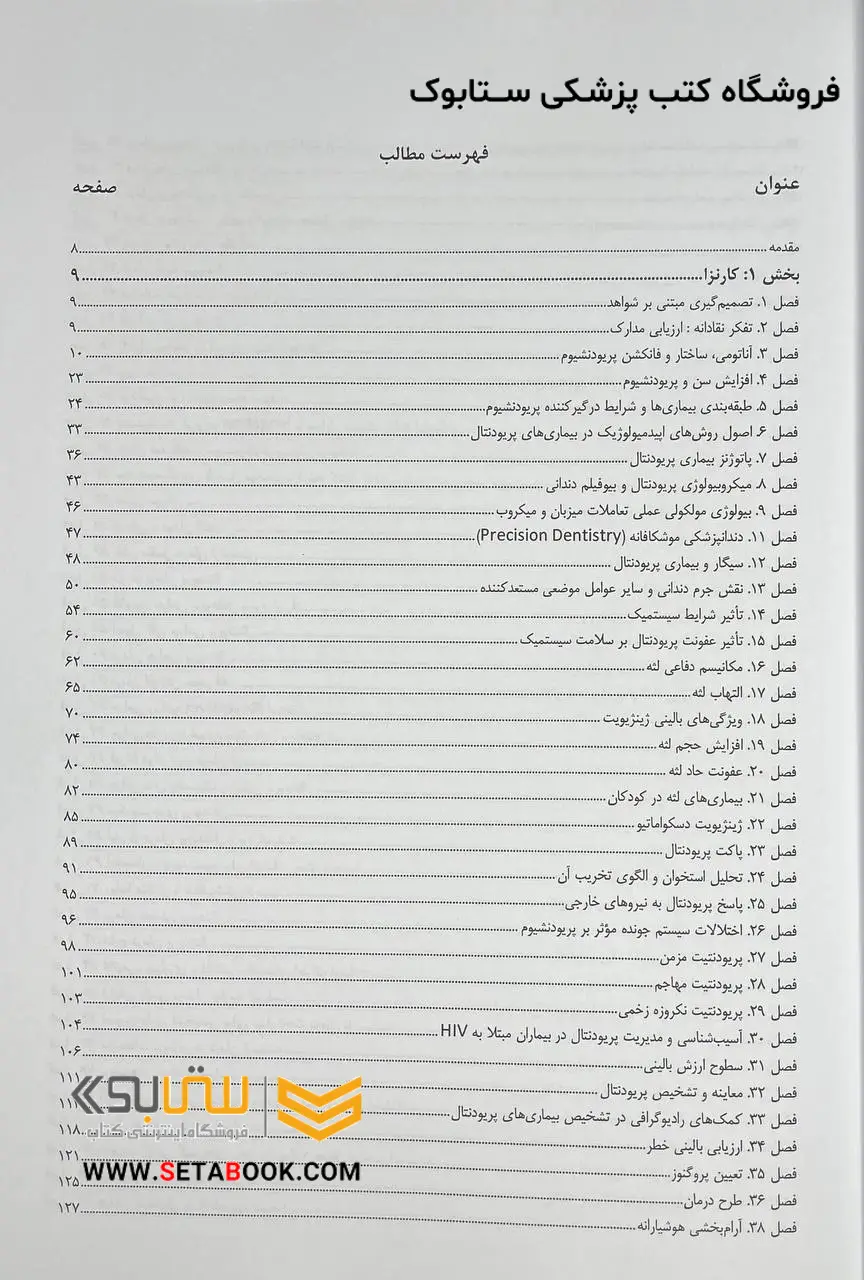 فروشگاه کتب پزشکی ستابوک
فهرست مطالب
عنوان صفحه
مقدمه ۸
بخش ۱: کارنزا ۹
فصل ۱. تصمیم‌گیری مبتنی بر شواهد ۹
فصل ۲. تفکر نقادانه : ارزیابی مدارک ۹
فصل ۳. آناتومی، ساختار و فانکشن پریودنشیوم ۱۰
فصل ۴. افزایش سن و پریودنشیوم ۲۳
فصل ۵. طبقه‌بندی بیماری‌ها و شرایط درگیرکننده پریودنشیوم ۲۴
فصل ۶. اصول روش‌های اپیدمیولوژیک در بیماری‌های پریودنتال ۳۳
فصل ۷. پاتوژنز بیماری پریودنتال ۳۶
فصل ۸. میکروبیولوژی پریودنتال و بیوفیلم دندانی ۴۳
فصل ۹. بیولوژی مولکولی عملی تعاملات میزبان و میکروب ۴۶
فصل ۱۱. دندانپزشکی موشکافانه (Precision Dentistry) ۴۷
فصل ۱۲. سیگار و بیماری پریودنتال ۴۸
فصل ۱۳. نقش جرم دندانی و سایر عوامل موضعی مستعدکننده ۵۰
فصل ۱۴. تأثیر شرایط سیستمیک ۵۴
فصل ۱۵. تأثیر عفونت پریودنتال بر سلامت سیستمیک ۶۰
فصل ۱۶. مکانیسم دفاعی لثه ۶۲
فصل ۱۷. التهاب لثه ۶۵
فصل ۱۸. ویژگی‌های بالینی ژینژیویت ۷۰
فصل ۱۹. افزایش حجم لثه ۷۴
فصل ۲۰. عفونت حاد لثه ۸۰
فصل ۲۱. بیماری‌های لثه در کودکان ۸۲
فصل ۲۲. ژینژیویت دسکواماتیو ۸۵
فصل ۲۳. پاکت پریودنتال ۸۹
فصل ۲۴. تحلیل استخوان و الگوی تخریب آن ۹۱
فصل ۲۵. پاسخ پریودنتال به نیروهای خارجی ۹۵
فصل ۲۶. اختلالات سیستم جونده مؤثر بر پریودنشیوم ۹۶
فصل ۲۷. پریودنتیت مزمن ۹۸
فصل ۲۸. پریودنتیت مهاجم ۱۰۱
فصل ۲۹. پریودنتیت نکروزه زخمی ۱۰۳
فصل ۳۰. آسیب‌شناسی و مدیریت پریودنتال در بیماران مبتلا به HIV ۱۰۴
فصل ۳۱. سطوح ارزش بالینی ۱۰۶
فصل ۳۲. معاینه و تشخیص پریودنتال ۱۱۱
فصل ۳۳. کمک‌های رادیوگرافی در تشخیص بیماری‌های پریودنتال
فصل ۳۴. ارزیابی بالینی خطر ۱۱۸
فصل ۳۵. تعیین پروگنوز ۱۲۱
فصل ۳۶. طرح درمان ۱۲۵
فصل ۳۸. آرام‌بخشی هوشیارانه ۱۲۷
ستابوک
فروشگاه اینترنتی کتاب
WWW.SETABOOK.COM